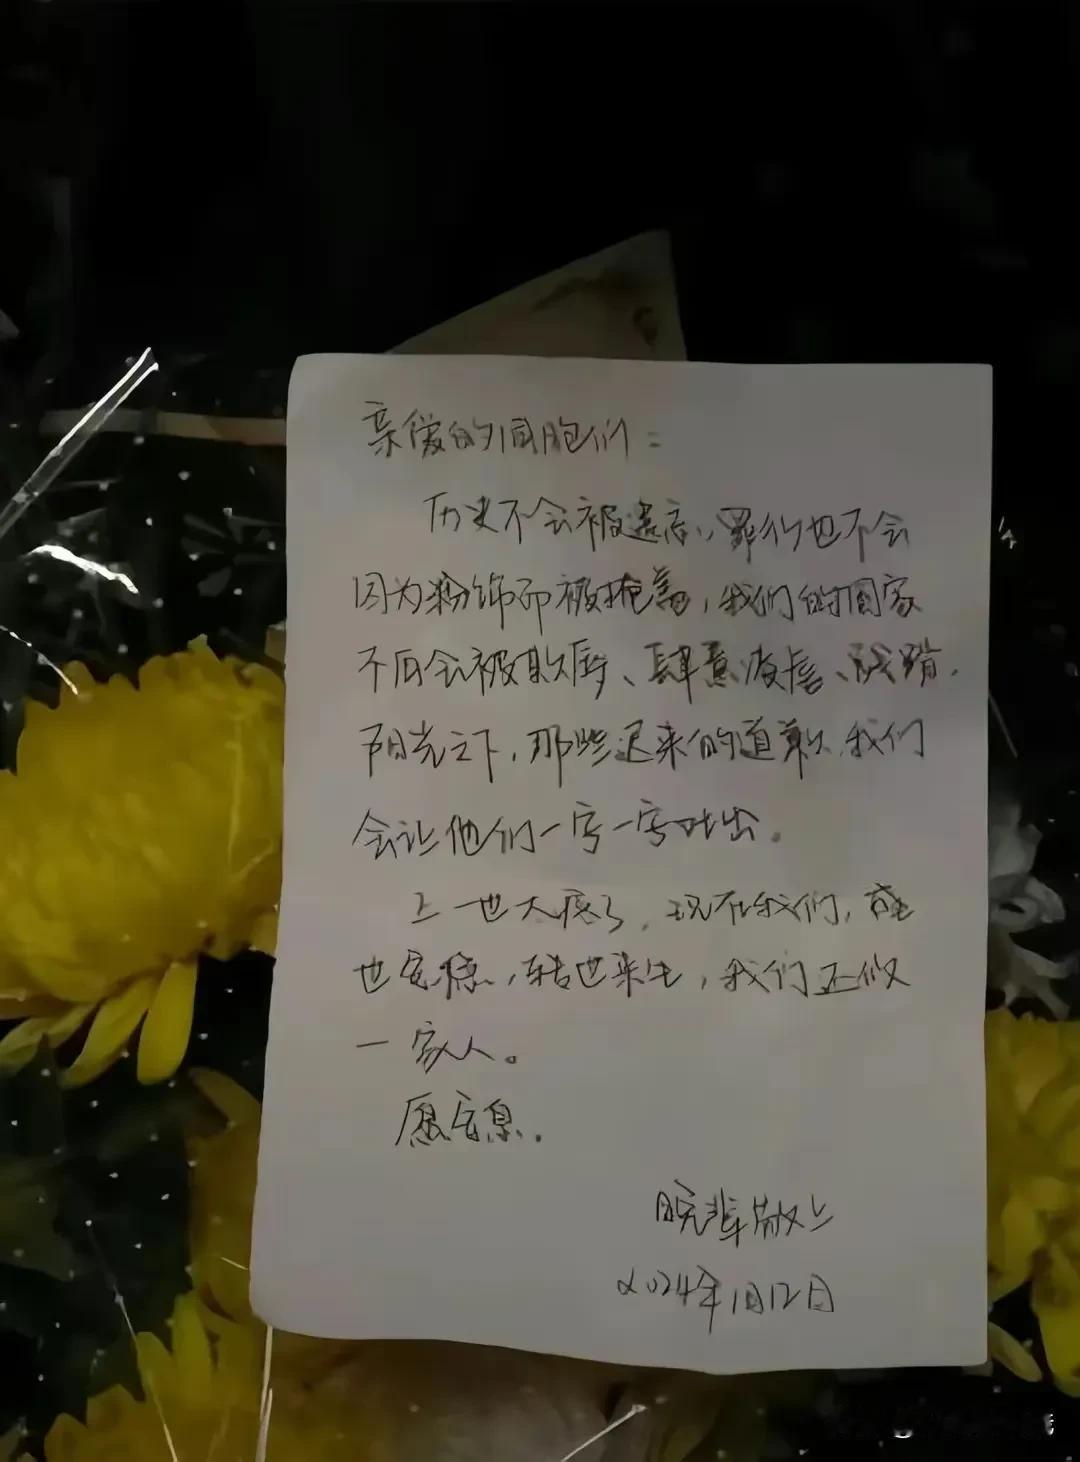 亲爱的同胞们：
历史不会被遗忘，罪行也不会
因为粉饰而被掩盖，我们的国家
不再会被欺辱、肆意凌虐、残踏.
阳光之下，那些迟来的道歉，我们
会让他们一字一字吐出。
上一世太疼了，现在我们，盛
世安稳，转世来生，我们还做
一家人。
愿安息.
晚辈敬上
2024年1月12日